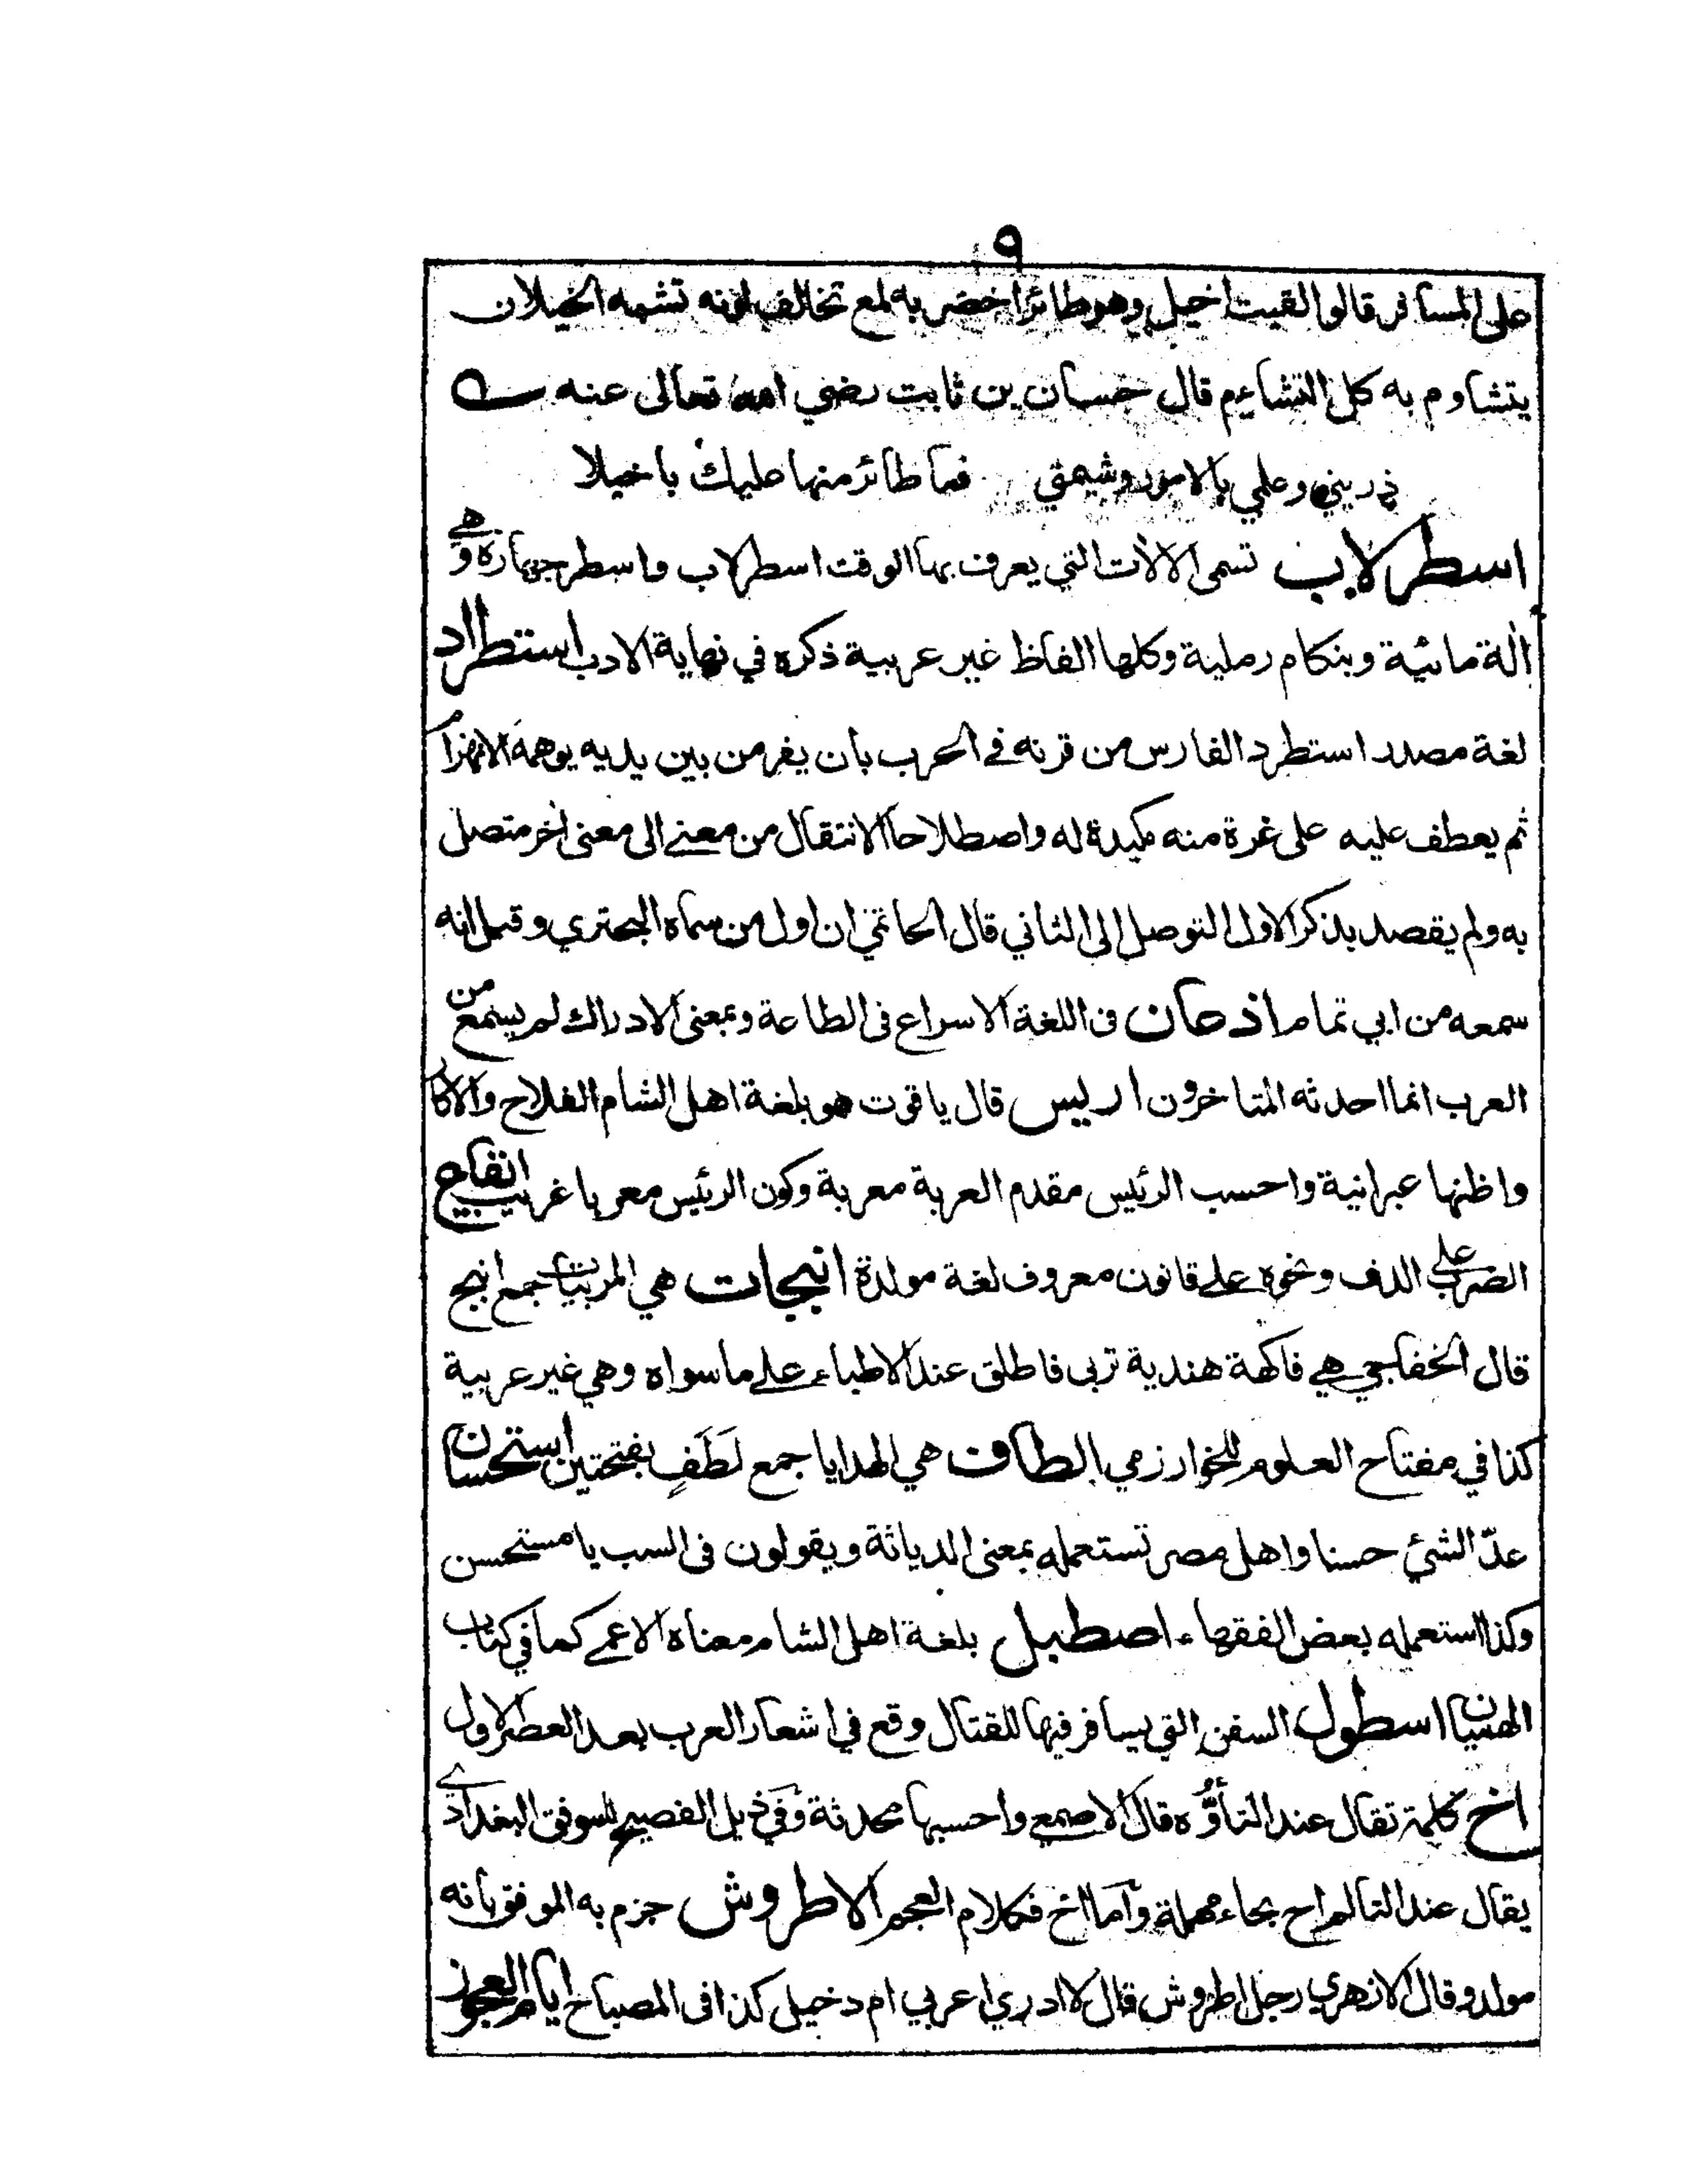 ٩
على المسافر قالوا لقيت اخيل وهو طائر اخضر به لمع تخالف لونه تشبه الخيلان
يتشاوم به كل التشاءم قال حسان بن ثابت رضي الله تعالى عنه
ذريني وعلمي بالامور وشيمتي فما طائر منها عليك باخيلا
اسطرلاب تسمى الالأت التي يعرف بها الوقت اسطرلاب واسطرجهارة وهي
الة مائية وبنكام رملية وكلها الفاظ غير عربية ذكره في نهاية الادب استطراد
لغة مصدر استطرد الفارس من قرنه في الحرب بان يفر من بين يديه يوهمه الانهزام
ثم يعطف عليه على غرة منه مكيدة له واصطلاحا الانتقال من معنى الى معنى اخر متصل
به ولم يقصد بذكر الاول التوصل الى الثاني قال الحاتمي ان اول من سماه البحتري وقيل انه
سمعه من ابي تمام اذعان في اللغة الاسراع في الطاعة وبمعنى الادراك لم يسمع من
العرب انما احدثه المتاخرون اريس قال ياقوت هو بلغة اهل الشام الفلاح والاكار
واظنها عبرانية واحسب الرئيس مقدم العربة معربة وكون الرئيس معربا غريب ايقاع
الضرب على الدف ونحوه على قانون معروف لغة مولدة انبجات هي المربيات جمع انبج
قال الخفاجي هي فاكهة هندية تربى فاطلق عند الاطباء على ما سواه وهي غير عربية
كذا في مفتاح العلوم للخوارزمي الطاف هي الهدايا جمع لَطَفٍ بفتحتين استحسان
عدّ الشئ حسنا واهل مصر تستعمله بمعنى الدياثة ويقولون في السب يا مستحسن
وكذا استعمله بعض الفقهاء اصطبل بلغة اهل الشام معناه الاعمى كما في كتاب
الهميان اسطول السفن التي يسافر فيها للقتال وقع في اشعار العرب بعد العصر الاول
اخ كلمة تقال عند التأوُّه قال الاصمعي واحسبها محدثة وفي ذيل الفصيح للموفق البغدادي
يقال عند التالم اح بحاء مهملة وأما اخ فكلام العجم الاطروش جزم به الموفق بانه
مولد وقال الازهري رجل اطروش قال لا ادري اعربي ام دخيل كذا في المصباح ايام العجوز